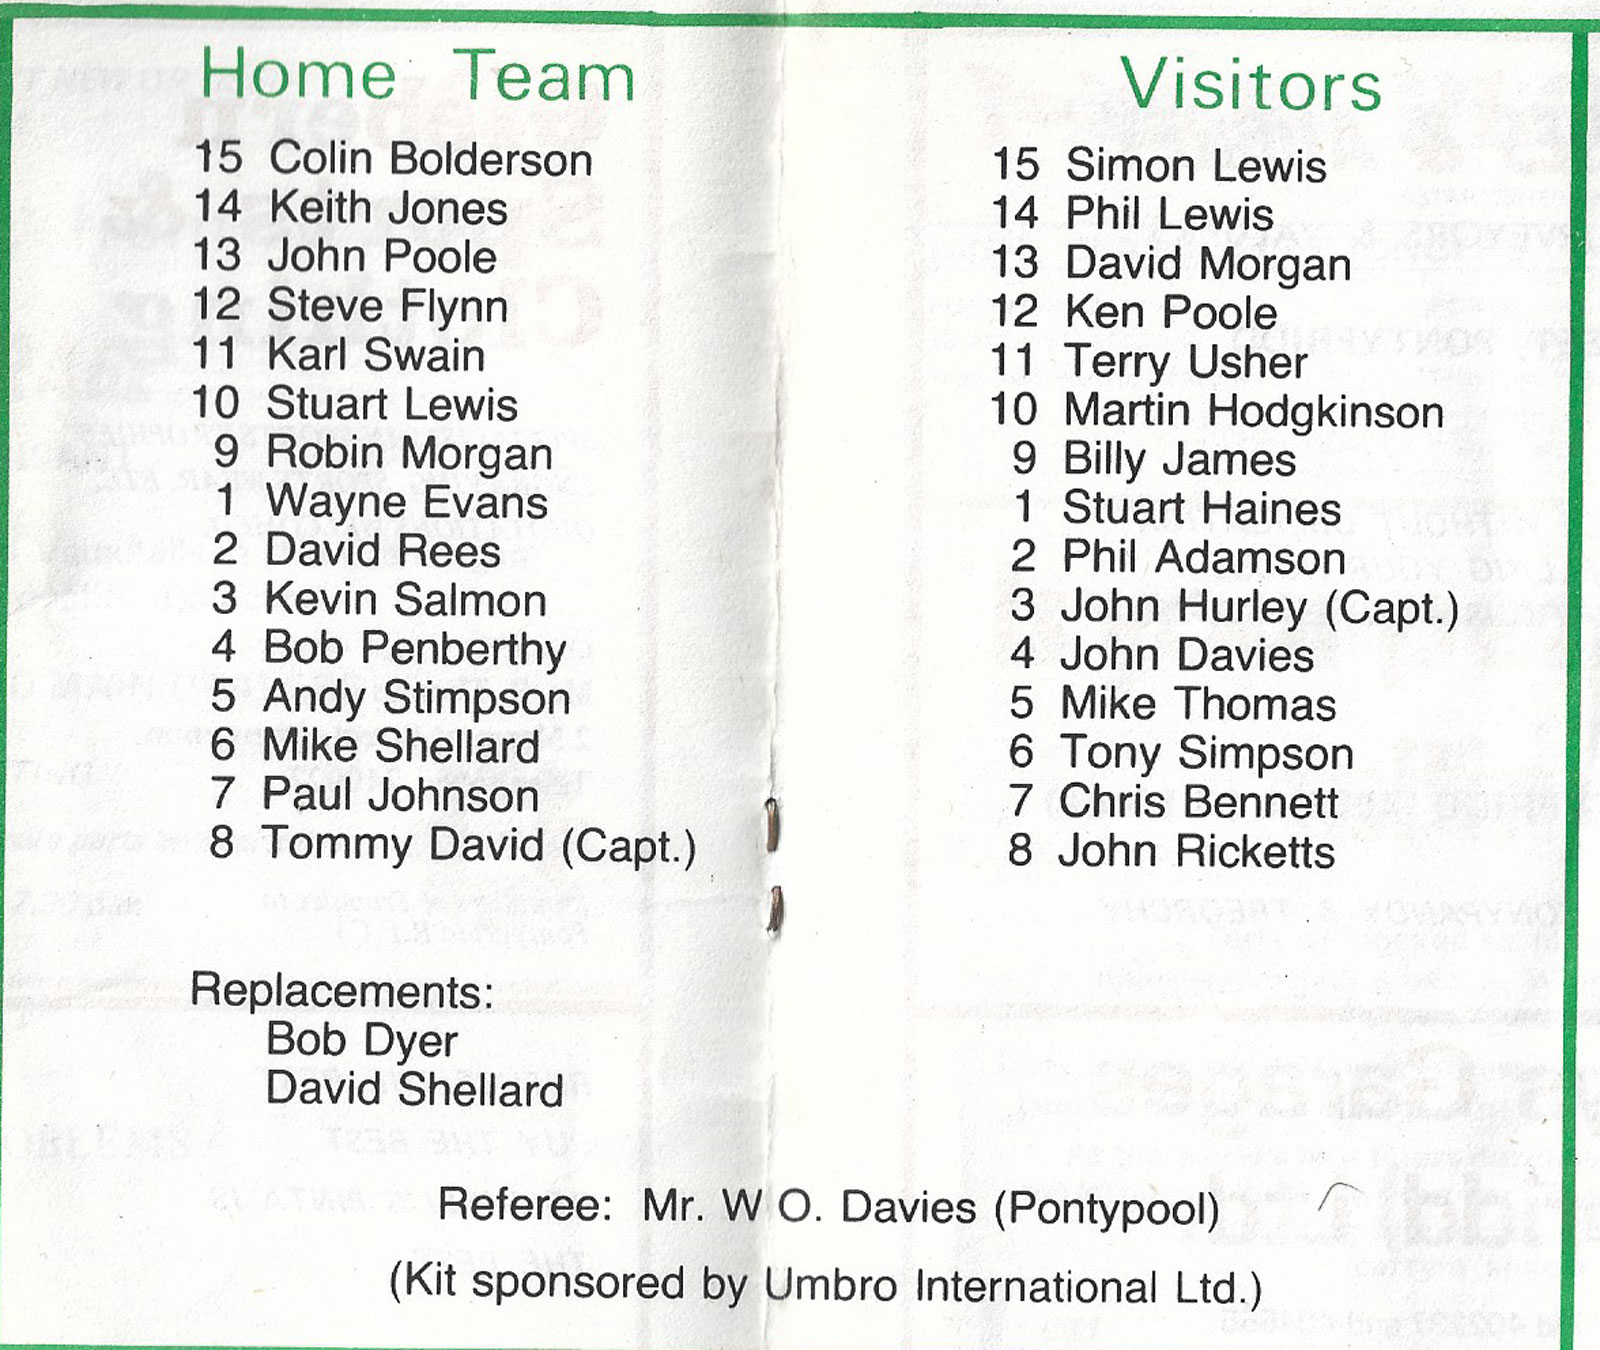 Home Team
15 Colin Bolderson
14 Keith Jones
13 John Poole
12 Steve Flynn
11 Karl Swain
10 Stuart Lewis
9 Robin Morgan
1 Wayne Evans
2 David Rees
3 Kevin Salmon
4 Bob Penberthy
5 Andy Stimpson
6 Mike Shellard
7 Paul Johnson
8 Tommy David (Capt.)
Replacements:
Bob Dyer
David Shellard
Visitors
15 Simon Lewis
14 Phil Lewis
13 David Morgan
12 Ken Poole
11 Terry Usher
10 Martin Hodgkinson
9 Billy James
1 Stuart Haines
2 Phil Adamson
3 John Hurley (Capt.)
4 John Davies
5 Mike Thomas
6 Tony Simpson
7 Chris Bennett
8 John Ricketts
Referee: Mr. W O. Davies (Pontypool)
(Kit sponsored by Umbro International Ltd.)